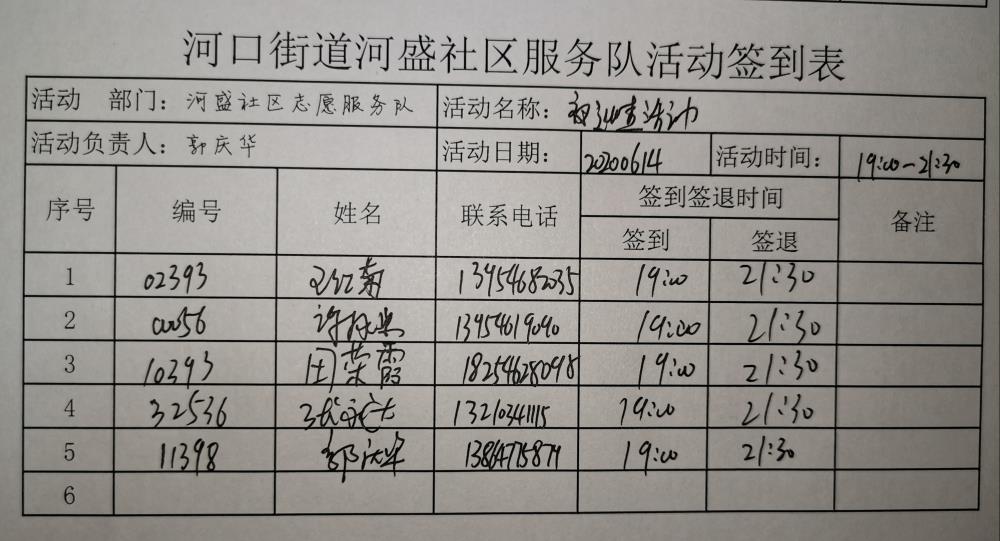 河口街道河盛社区服务队活动签到表
活动 部门：河盛社区志愿服务队 活动名称：
活动负责人：郭庆华 活动日期：20200614 活动时间：19:00-21:30
序号 编号 姓名 联系电话 签到签退时间 备注
签到 签退
1 02393 13954682035 19:00 21:30
2 00056 13954619090 19:00 21:30
3 10393 田荣霞 18254628098 19:00 21:30
4 32536 13210341115 19:00 21:30
5 11398 郭庆华 19:00 21:30
6